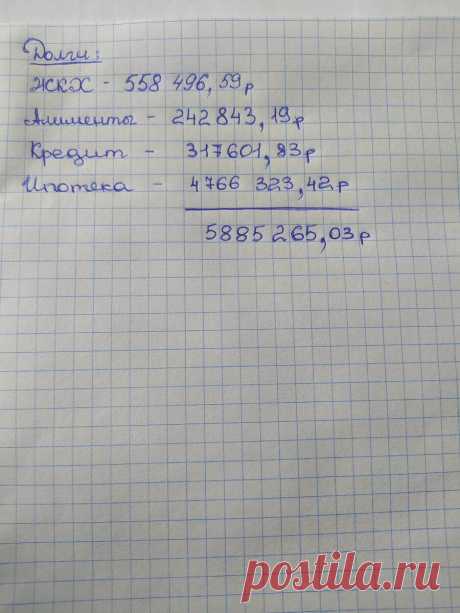 Долги:
ЖКХ - 558 496,59р
Алименты - 242 843,19р
Кредит - 317601,83р
Ипотека - 4766 323,42р
5885 265,03р
postila.ru